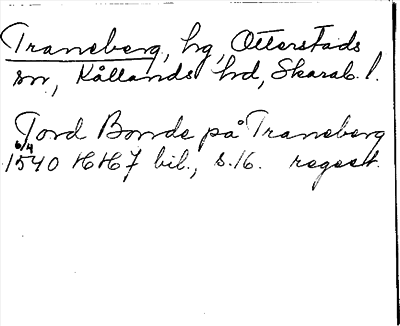 Traneberg, hg, Otterstads
sn, Kållands hd, Skarab. l.
Tord Bonde på Traneberg
6/4
1540 HH 7 bil., s. 16. regest.